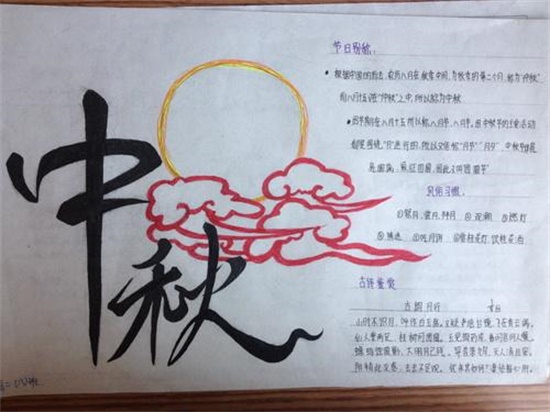 中秋
节日别称:
•根据中国的历法,农历八月在秋季中间,为秋季的第二个月,称为“仲秋”
而八月十五在“仲秋”之中,所以称为中秋
八月十五所以称八月节、八月半,因中秋节的主要活动
都是围绕“月”进行的,所以又俗称“月节”“月夕”,中秋节
风俗习惯:
①赏月、祭月、拜月 ②观潮 ③燃灯
④猜谜 ⑤吃月饼 ⑥赏桂花、饮桂花酒
古诗鉴赏
古朗月行
小时不识月,呼作白玉盘。又疑瑶台镜,飞在青云端。
仙人垂两足,桂树何团团。白兔捣药成,问言与谁餐。
蟾蜍蚀圆影,大明夜已残。羿昔落九乌,天人清且安。
阴精此沦惑,去去不足观。